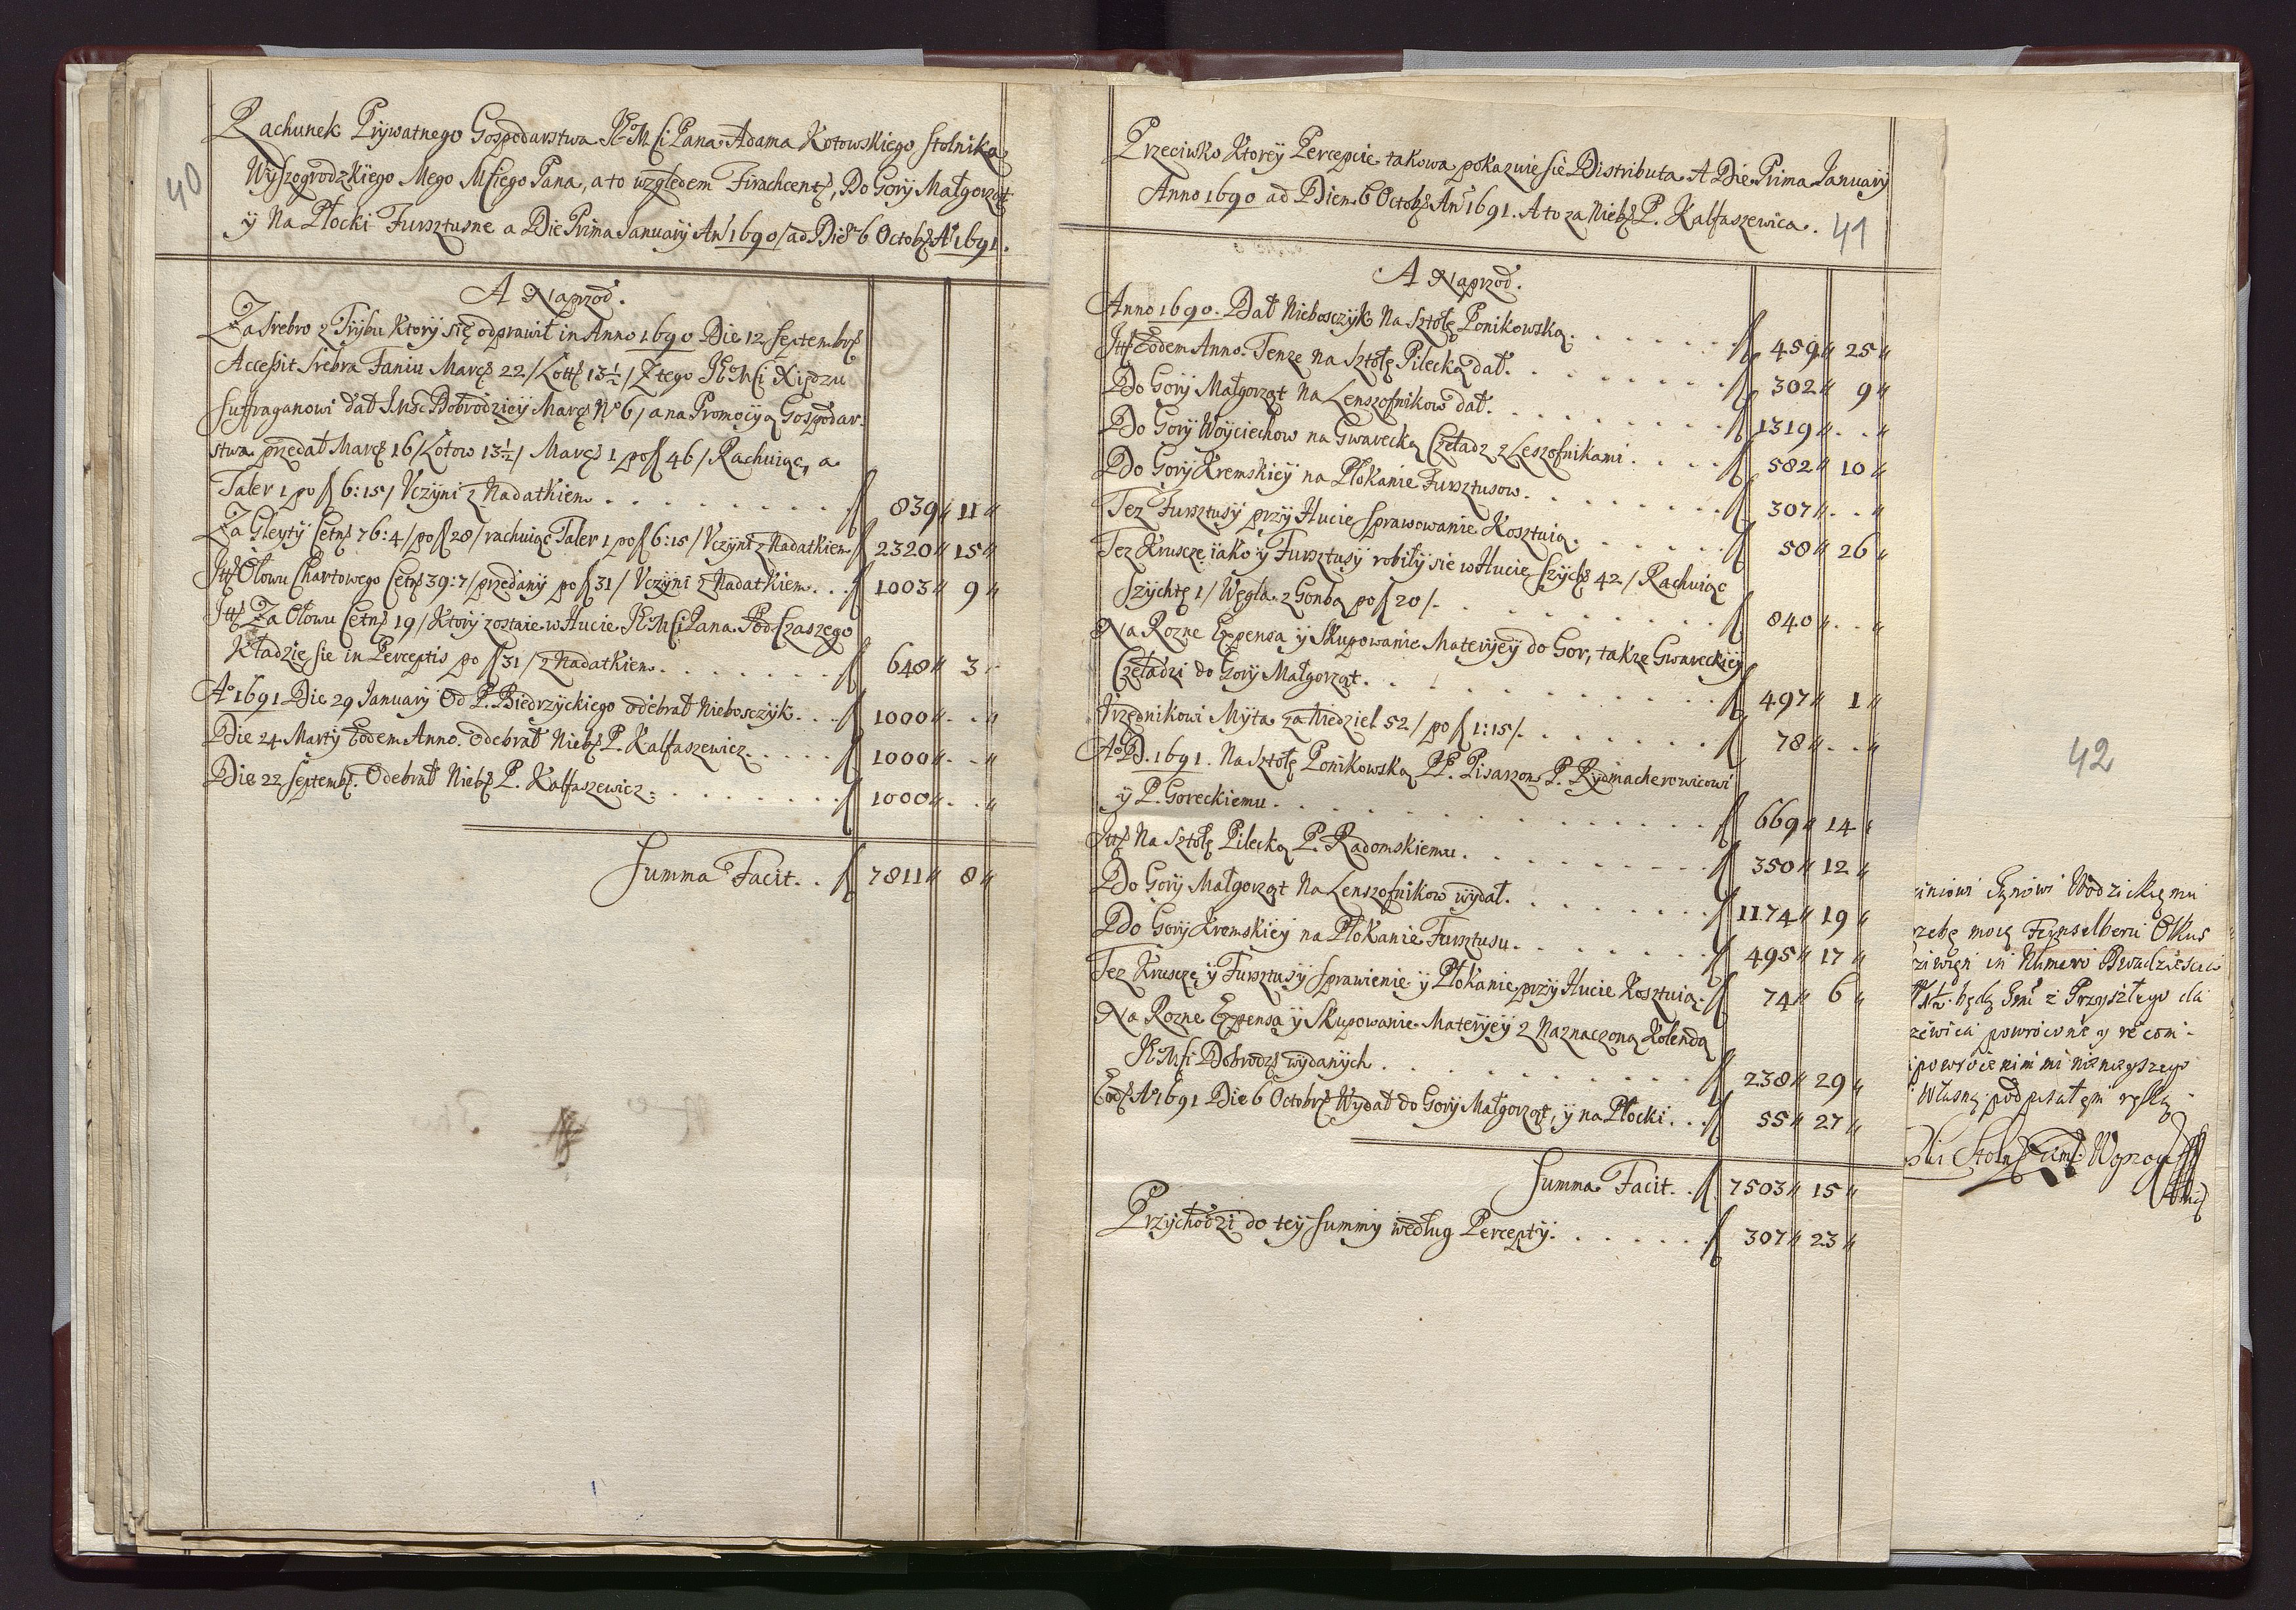 40
Rachunek Prÿwatnego Gospodarstwa Je⁰ Mści Pana Adama Kotowskiego Stolnika
Wÿszogrodzkiego Mego Mściego Pana, a to względem Firachcentỹ, Do Gorÿ Małgorząt
ÿ Na Płocki Fursztusne a Die Prima Januarÿ An⁰ 1690 / ad Diẽ 6 Octobr A⁰ 1691.
A Naprzod.
Za Srebro z Trÿbu Ktorÿ się odprawił in Anno 1690 Die 12 Septembr
Accessit Srebra Faniu Març 22 / Lott 13½ / Z tego Je⁰ Mści Xiędzu
Suffraganowi dał Jmść Dobrodzieÿ Març N⁰ 6 / a na Promocÿą Gospodar-
stwa przedał Març 16 Łotow 13½ / Març 1 po f 46 / Rachuiąc, a
Taler 1 po f 6:15 / Vczÿni z Nadatkiem . . . . . . . . . f 839 11
Za Gleytÿ Cetn 76:4 / po f 28 / rachuiąc Taler 1 po f 6:15 / Vczÿni z Nadatkiem f 2320 15
Itt Ołowu Chartowego Cetn 39:7 / przedanÿ po f 31 / Vczÿni z Nadatkiem . . . f 1003 9
Itt Za Ołowu Cetn 19 / Ktorÿ zostaie w Hucie Je⁰ Mści Pana Podczaszego
Kładzie sie in Perceptis po f 31 / z Nadatkiem . . . . . . . f 648 3
A⁰ 1691 Die 29 Januarÿ Od P. Biedrzÿckiego odebrał Nieboszczÿk . . . f 1000 . .
Die 24 Martÿ Eodem Anno. Odebrał Nieb P. Kalfaszewicz . . . . . f 1000 . .
Die 22 Septemb. Odebrał Nieb P. Kalfaszewicz . . . . . . . . f 1000 . .
Summa Facit . . f 7811 8
Przeciwko Ktoreÿ Percepcie takowa pokazuie sie Distributa A Die Prima Januarÿ
Anno 1690 ad Diem 6 Octob An⁰ 1691. A to za Nieb P. Kalfaszewica.
41
A Naprzod.
Anno 1690. Dał Nieboszczÿk Na Sztołę Ponikowską . . . . . . . f 459 25
Itt Eodem Anno. Tenze na Sztołę Pilecką dał . . . . . . . . f 302 9
Do Gorÿ Małgorząt Na Lenszofnikow dał . . . . . . . . f 1319 . .
Do Gorÿ Woÿciechow na Gwarecką Czeladz z Leszofnikami . . . . f 582 10
Do Gorÿ Kremskieÿ na Płokanie Fursztusow . . . . . . . f 307 . .
Tez Fursztusÿ przÿ Hucie Sprawowanie Kosztuią . . . . . . f 58 26
Tez Kruscze iako ÿ Fursztusÿ robiłÿ sie w Hucie Szÿch 42 / Rachuiąc
Szÿchtę 1 / Węgla z Gonbą po f 20 / . . . . . . . . . f 840 . .
Na Rozne Expensa ÿ Skupowanie Materÿeÿ do Gor, takze Gwareckieÿ
Czeladzi do Gorÿ Małgorząt . . . . . . . . . . . f 497 1
Vrzędnikowi Mÿta za Niedziel 52 / po f 1:15 / . . . . . . f 78 . .
A⁰ D. 1691. Na Sztołę Ponikowską PP. Pisarzom P. Rÿdmacherowicowi
ÿ P. Goreckiemu . . . . . . . . . . . . f 669 14
Itt Na Sztołę Pilecką P. Radomskiemu . . . . . . . . f 350 12
Do Gorÿ Małgorząt Na Lenszofnikow wÿdał . . . . . . . f 1174 19
Do Gorÿ Kremskieÿ na Płokanie Fursztusu . . . . . . . f 495 17
Tez Kruscze ÿ Fursztusÿ Sprawienie ÿ Płokanie przÿ Hucie Kosztuią . f 74 6
Na Rozne Expensa ÿ Skupowanie Materÿeÿ z Naznaczoną Kolendą
Je⁰ Mści Dobrodz wÿdanÿch . . . . . . . . . . f 238 29
Eod A⁰ 1691 Die 6 Octobr Wÿdał do Gorÿ Małgorząt, ÿ na Płocki . . . f 55 27
Summa Facit . . f 7503 15
Przÿchodzi do teÿ Summÿ według Perceptÿ . . . . . . f 307 23
42
Synowi Wodzickiemu
mocą Olkus
in Numero Dwadziescia
będę z Przyszłego da
powrocone y recom-
powroceniem ninieyszego
Własną podpisałem ręką